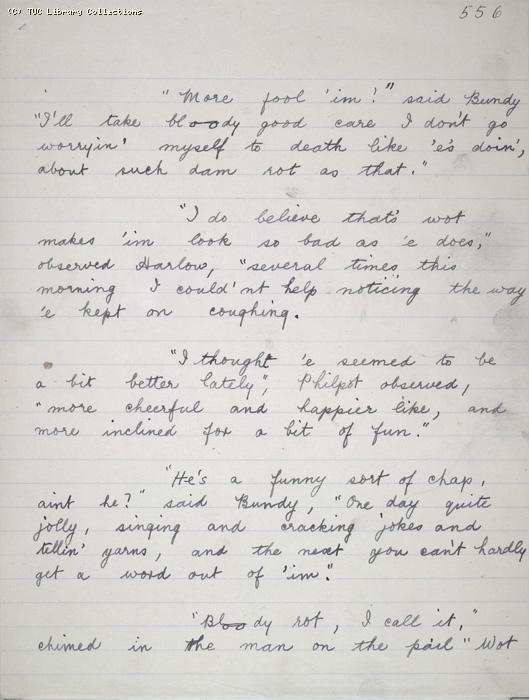 (C) TUC Library Collections
556
"More fool 'im!" said Bundy
"I'll take bloody good care I don't go
worryin' myself to death like 'e's doin',
about such dam rot as that."
"I do believe that's wot
makes 'im look so bad as 'e does,"
observed Harlow, "several times this
morning I could'nt help noticing the way
'e kept on coughing.
"I thought 'e seemed to be
a bit better lately", Philpot observed,
"more cheerful and happier like, and
more inclined for a bit of fun."
"He's a funny sort of chap,
aint he?" said Bundy, "One day quite
jolly, singing and cracking jokes and
tellin' yarns, and the next you can't hardly
get a word out of 'im."
"Bloody rot, I call it,"
chimed in the man on the pail "Wot